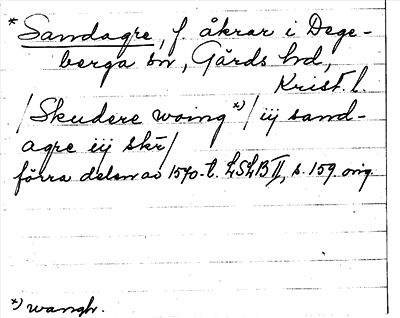 * Sandagre, f. åkrar i Dege-
berga sn, Gärds hd,
Krist. l.
/Skudere woing *)/ iij sand-
agre iij skr/
förra delen av 1570-t. LSLB II, s. 159 orig.
*) wangh.